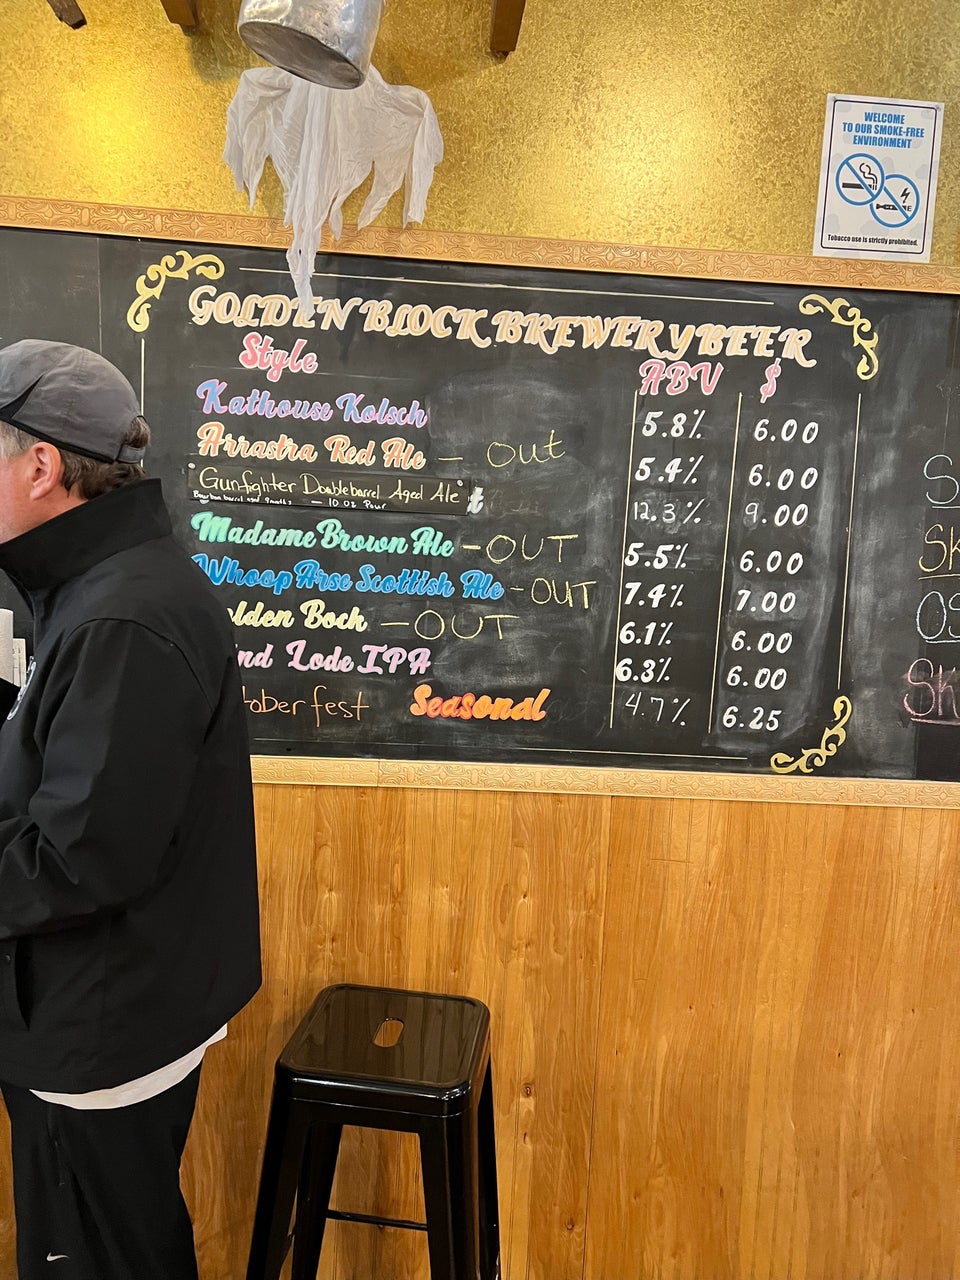 WELCOME
TO OUR SMOKE-FREE
ENVIRONMENT
Tobacco use is strictly prohibited.
GOLDEN BLOCK BREWERY BEER
Style ABV $
Kathouse Kolsch 5.8% 6.00
Arrastra Red Ale - out 5.4% 6.00
"Gunfighter Doublebarrel Aged Ale" 12.3% 9.00
Bourbon barrel aged - 10 oz Pour
Madame Brown Ale - OUT 5.5% 6.00
Whoop Arse Scottish Ale - OUT 7.4% 7.00
lden Bock - OUT 6.1% 6.00
ind Lode IPA 6.3% 6.00
toberfest Seasonal 4.7% 6.25
S
SK
OS
SK